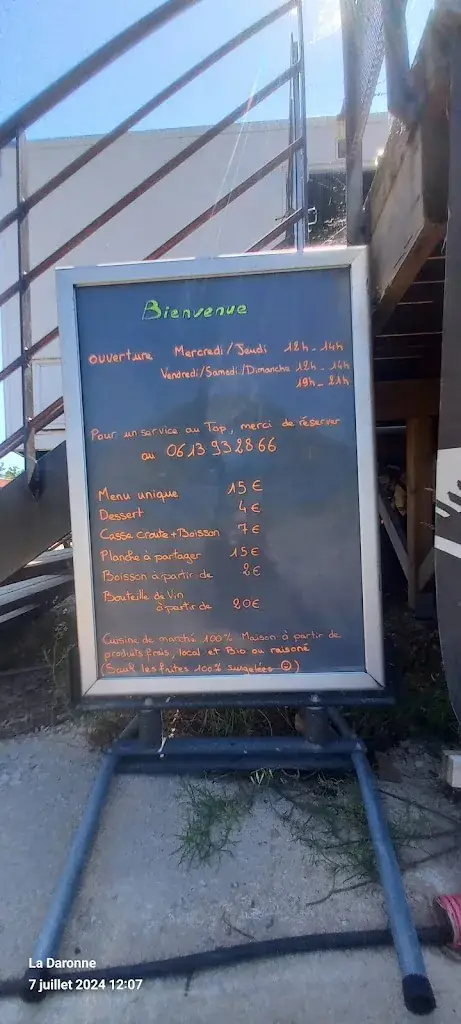 Bienvenue
ouverture Mercredi/Jeudi 12h_14h
Vendredi/Samedi/Dimanche 12h_14h
19h_21h
Pour un service au Top, merci de réserver
au 0613932866
Menu unique 15€
Dessert 4€
Casse croute+Boisson 7€
Planche à partager 15€
Boisson à partir de 2€
Bouteille de Vin
à partir de 20€
Cuisine de marché 100% Maison à partir de
produits frais, local et Bio ou raisoné
(Sauf les frites 100% surgelées ☺)
La Daronne
7 juillet 2024 12:07